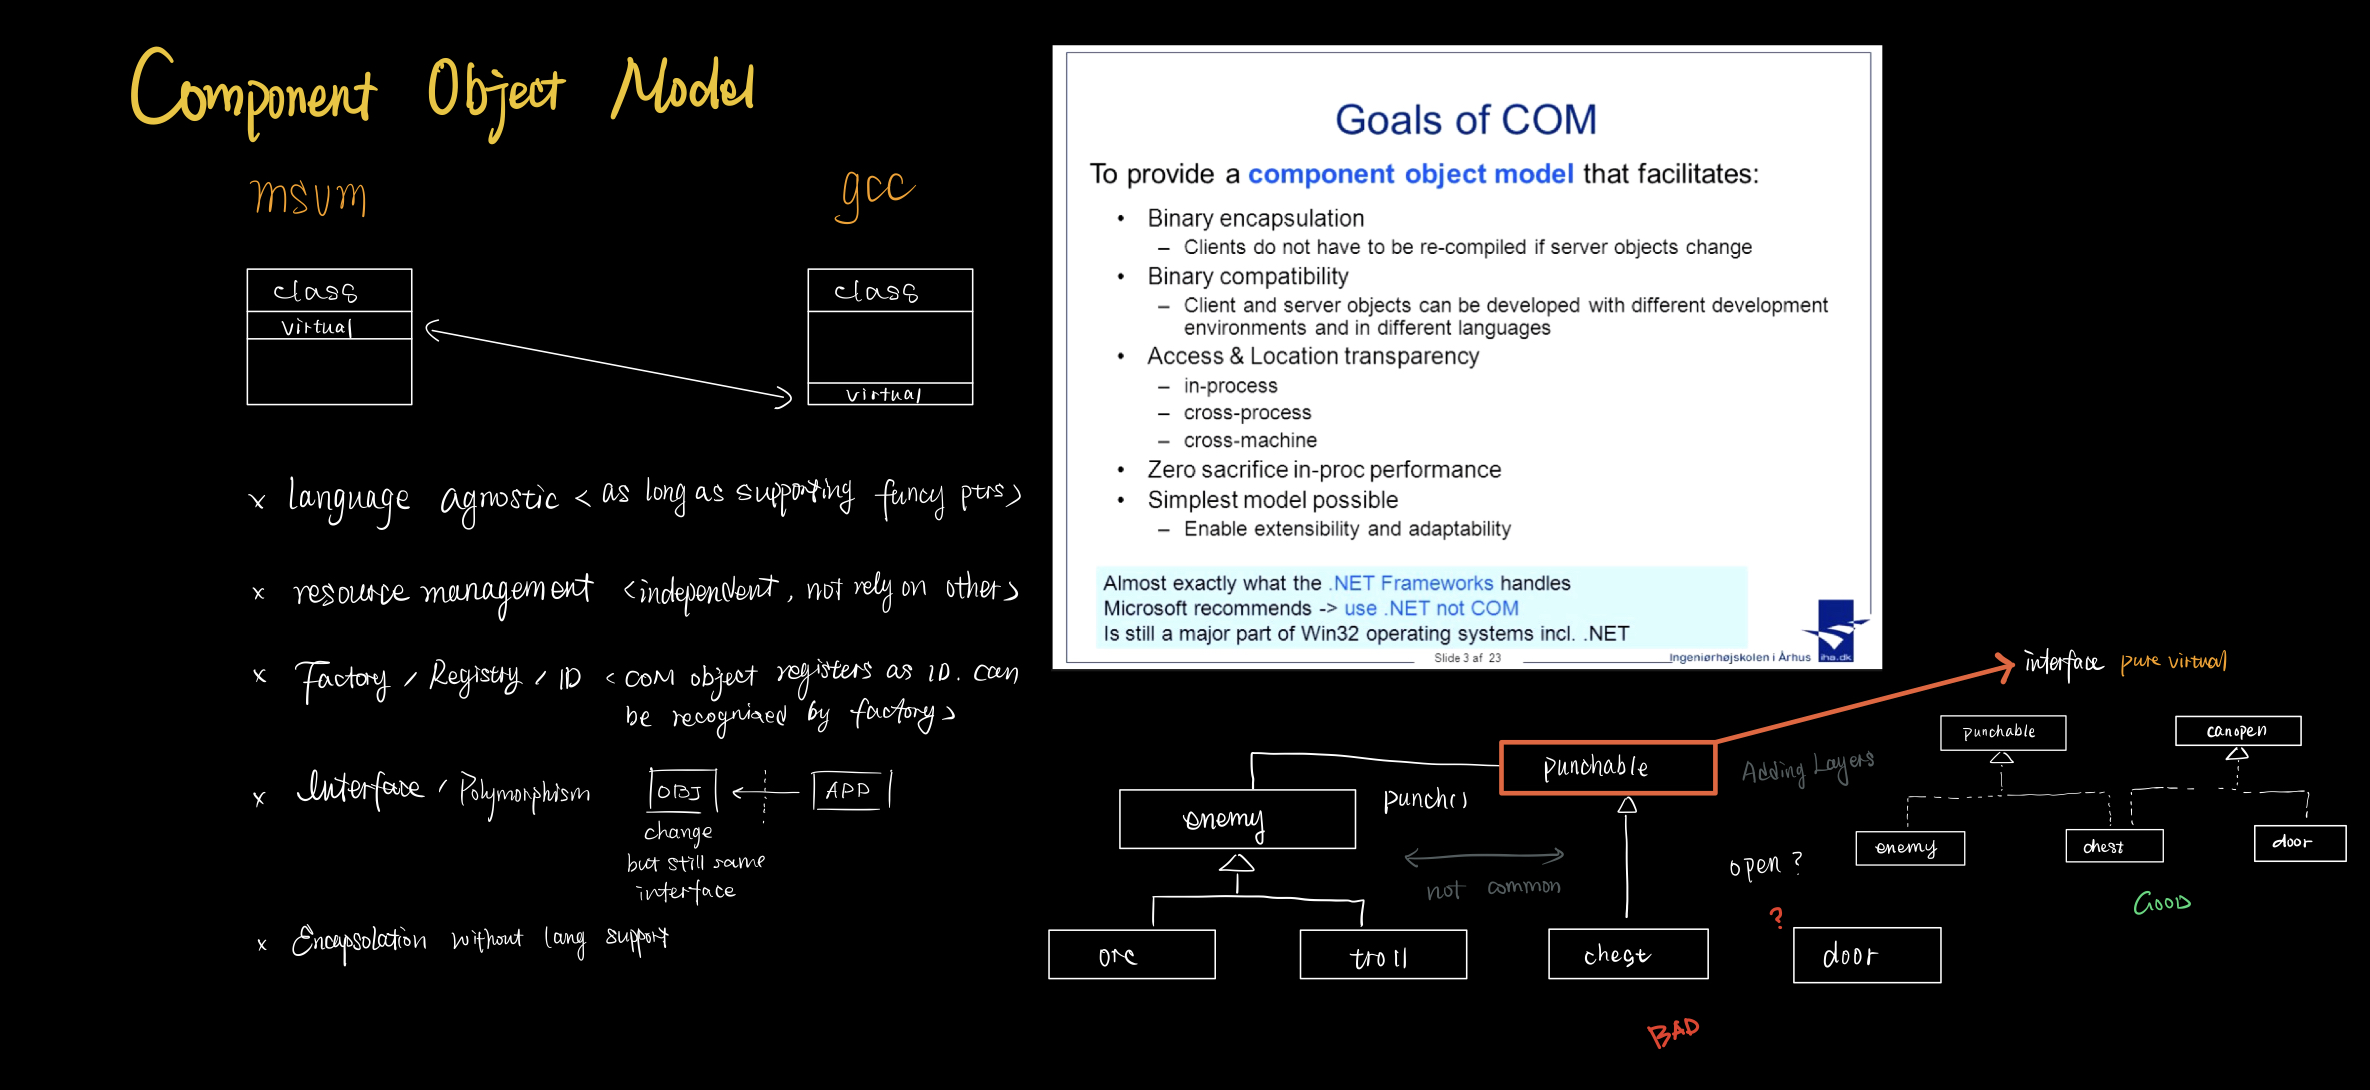 Component Object Model
msvm
gcc
class
virtual
class
virtual
x language agnostic < as long as supporting funcy ptrs >
x resource management < independent, not rely on other >
x Factory / Registry / ID < COM object registers as ID. can
be recognized by factory >
x Interface / Polymorphism
OBJ
APP
change
but still same
interface
x Encapsolation without lang support
Goals of COM
To provide a component object model that facilitates:
• Binary encapsulation
– Clients do not have to be re-compiled if server objects change
• Binary compatibility
– Client and server objects can be developed with different development
environments and in different languages
• Access & Location transparency
– in-process
– cross-process
– cross-machine
• Zero sacrifice in-proc performance
• Simplest model possible
– Enable extensibility and adaptability
Almost exactly what the .NET Frameworks handles
Microsoft recommends -> use .NET not COM
Is still a major part of Win32 operating systems incl. .NET
Slide 3 af 23
Ingeniørhøjskolen i Århus
iha.dk
interface pure virtual
punchable
Adding Layers
enemy
punch()
not common
open ?
?
orc
troll
chest
door
BAD
punchable
canopen
enemy
chest
door
GOOD